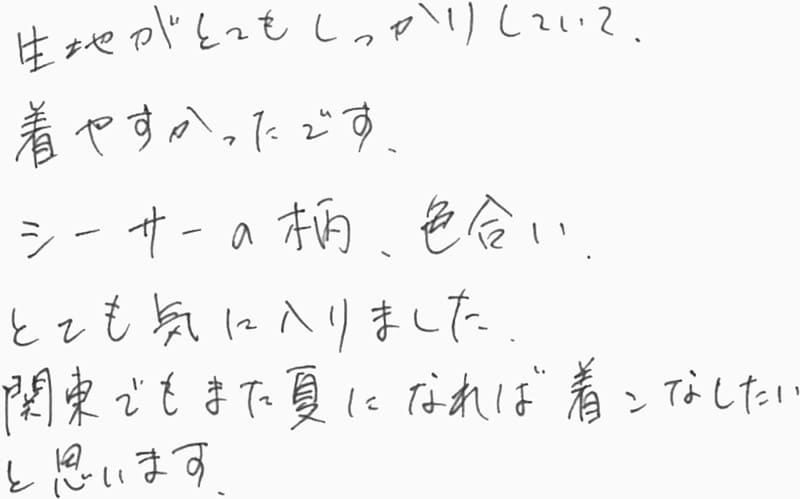 生地がとてもしっかりしていて、
着やすかったです、
シーサーの柄、色合い、
とても気に入りました、
関東でもまた夏になれば着こなしたい
と思います、